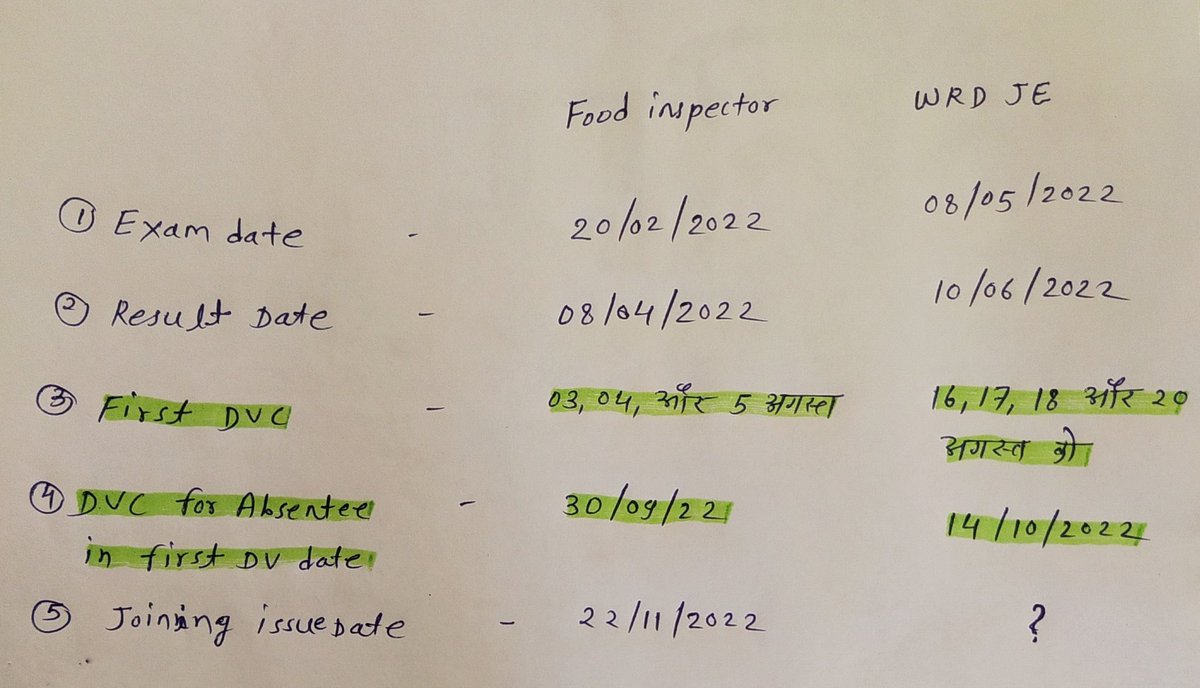 Food inspector WRD JE
① Exam date - 20/02/2022 08/05/2022
② Result Date - 08/04/2022 10/06/2022
③ First DVC - 03, 04, और 5 अगस्त 16, 17, 18 और 20
अगस्त को
④ DVC for Absentee - 30/09/22 14/10/2022
in first DV date
⑤ Joining issue Date - 22/11/2022 ?